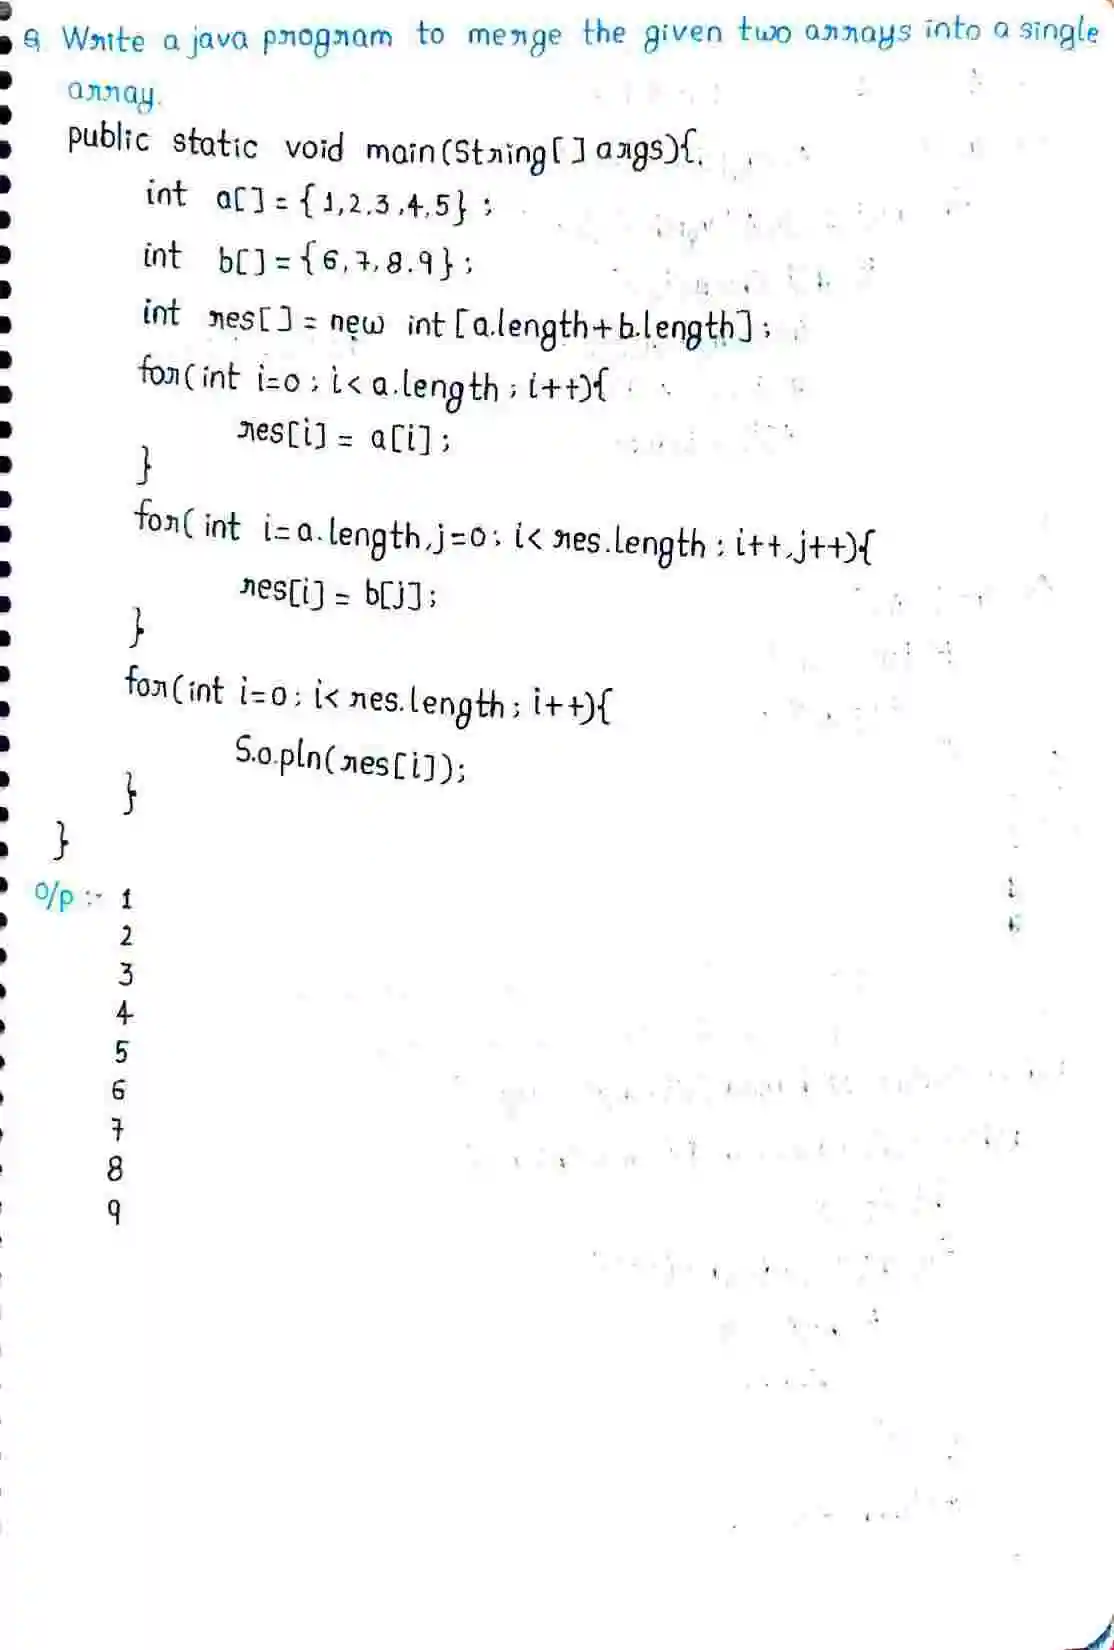 Q Write a java program to merge the given two arrays into a single
array.
public static void main(String[] args){
int a[] = {1,2,3,4,5} ;
int b[] = {6,7,8.9} ;
int res[] = new int [a.length+b.length] ;
for(int i=0 ; i< a.length ; i++){
res[i] = a[i] ;
}
for( int i=a.length,j=0 ; i< res.length ; i++,j++){
res[i] = b[j] ;
}
for(int i=0 ; i< res.length ; i++){
S.o.pln(res[i]);
}
}
O/p :- 1
2
3
4
5
6
7
8
9